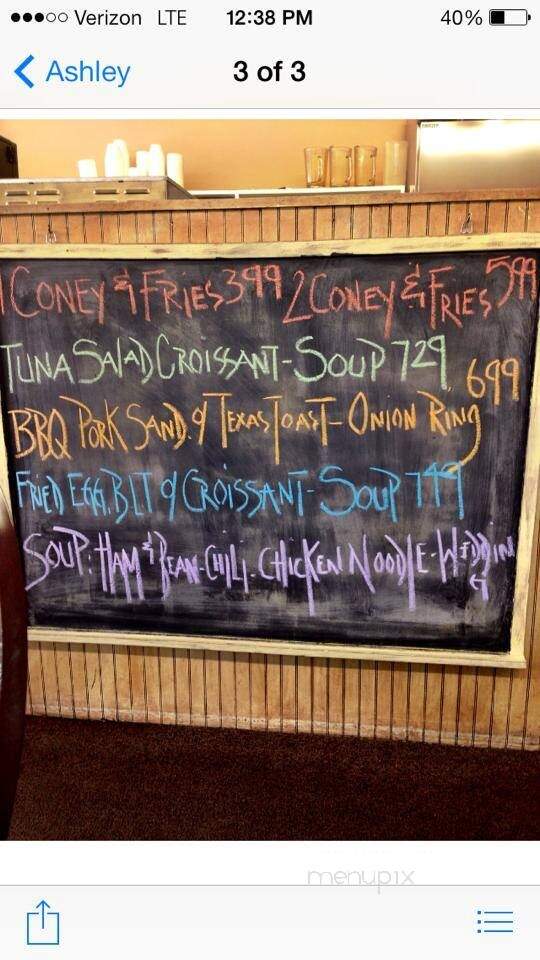 Verizon LTE 12:38 PM 40%
Ashley 3 of 3
1 CONEY & FRIES 399 2 CONEY & FRIES 599
TUNA SALAD CROISSANT - SOUP 729
BBQ PORK SAND. o/ TEXAS TOAST - ONION RING 699
FRIED EGG, BLT o/ CROISSANT - SOUP 749
SOUP: HAM & BEAN - CHILI - CHICKEN NOODLE - WEDDING
menupix